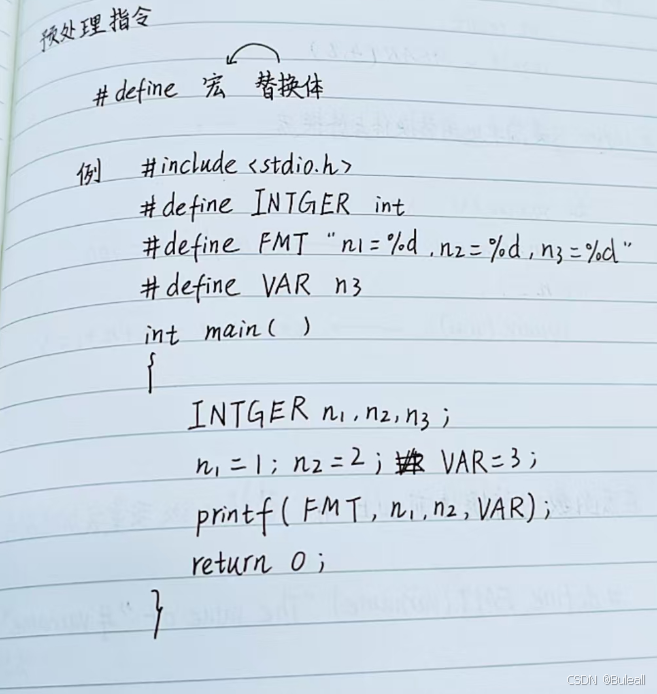 预处理指令
#define 宏 替换体
例 #include <stdio.h>
#define INTGER int
#define FMT "n1=%d, n2=%d, n3=%d"
#define VAR n3
int main( )
{
INTGER n1, n2, n3;
n1=1; n2=2; VAR=3;
printf( FMT, n1, n2, VAR);
return 0;
}
CSDN @Buleall